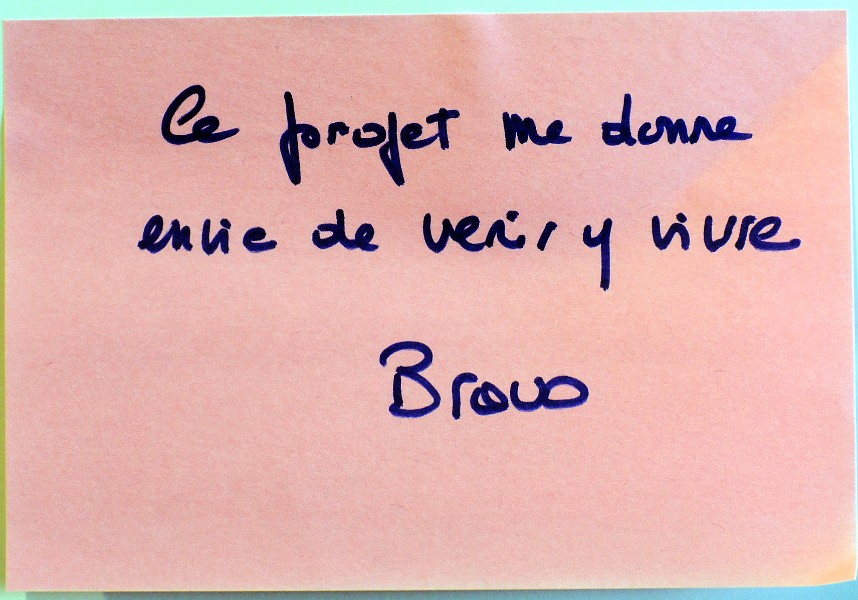 Ce projet me donne
envie de venir y vivre
Bravo